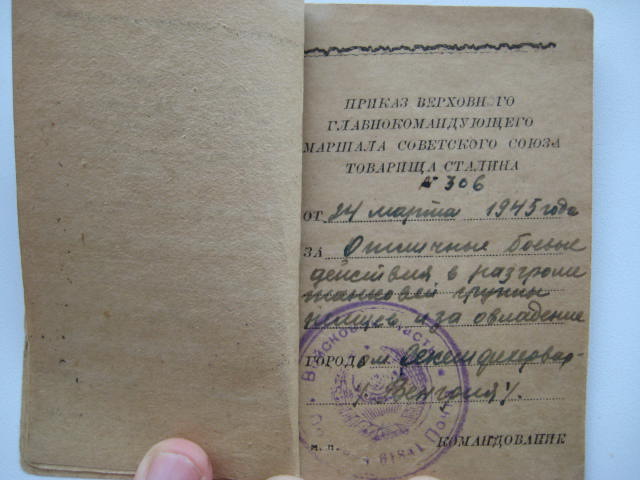 ПРИКАЗ ВЕРХОВНОГО
ГЛАВНОКОМАНДУЮЩЕГО
МАРШАЛА СОВЕТСКОГО СОЮЗА
ТОВАРИЩА СТАЛИНА
№ 306
ОТ 24 марта 1945 года
ЗА Отличные боевые
действия в разгроме
танковой группы
немцев и за овладение
ГОРОДом Секешфехервар-
(Венгрия).
М. П. КОМАНДОВАНИЕ
Войсковая часть
Полевая